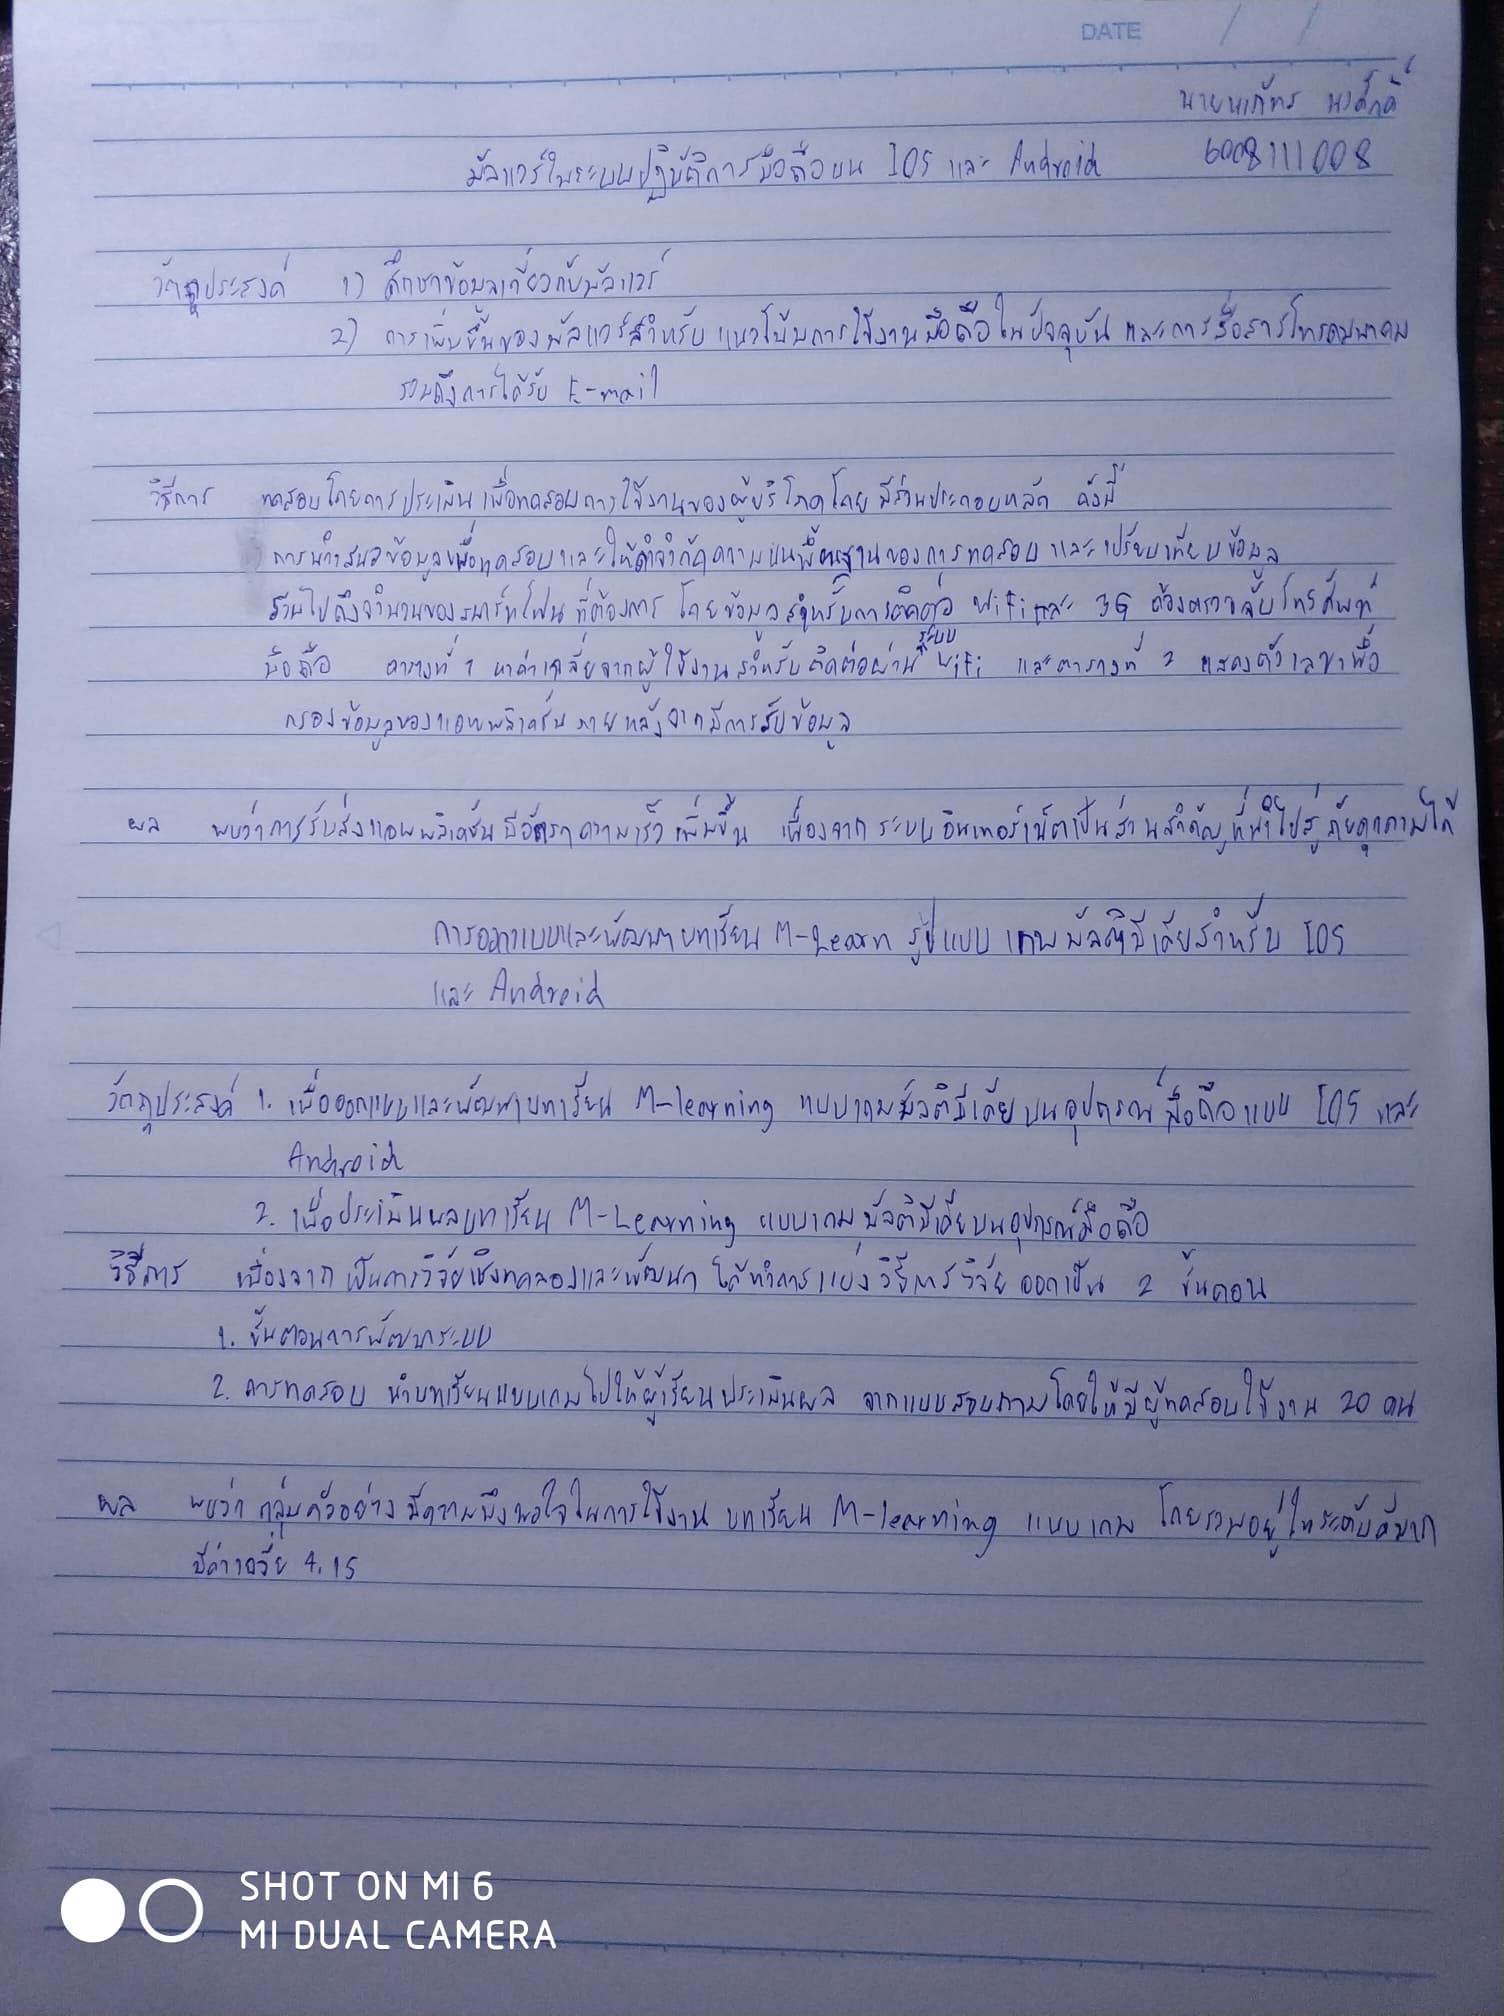 DATE / /
นาย
มัลแวร์ในระบบปฏิบัติการมือถือบน IOS และ Android 6008111008
วัตถุประสงค์ 1) ศึกษาข้อมูลเกี่ยวกับมัลแวร์
2) การเพิ่มขึ้นของมัลแวร์สำหรับ แนวโน้มการใช้งานมือถือในปัจจุบัน และการสื่อสารโทรคมนาคม
รวมถึงการได้รับ E-mail
วิธีการ ทดสอบโดยการประเมิน เพื่อทดสอบการใช้งานของผู้บริโภคโดยมีส่วนประกอบหลัก ดังนี้
การนำเสนอข้อมูลเพื่อทดสอบและให้คำจำกัดความบนพื้นฐานของการทดสอบ และเปรียบเทียบข้อมูล
รวมไปถึงจำนวนของสมาร์ทโฟน ที่ต้องการ โดยข้อมูลสำหรับการติดต่อ WiFi และ 3G ต้องตรวจจับโทรศัพท์
มือถือ ตารางที่ 1 หาค่าเฉลี่ยจากผู้ใช้งานสำหรับติดต่อผ่านระบบ WiFi และตารางที่ 2 แสดงตัวเลขเพื่อ
กรองข้อมูลของแอพพลิเคชั่น ภายหลังจากมีการรับข้อมูล
ผล พบว่าการรับส่งแอพพลิเคชั่นมีอัตราความเร็วเพิ่มขึ้น เนื่องจาก ระบบอินเทอร์เน็ตเป็นส่วนสำคัญที่นำไปสู่ภัยคุกคามได้
การออกแบบและพัฒนาบทเรียน M-Learn รูปแบบ เกมมัลติมีเดียสำหรับ IOS
และ Android
วัตถุประสงค์ 1. เพื่อออกแบบและพัฒนาบทเรียน M-learning แบบเกมมัลติมีเดียบนอุปกรณ์มือถือแบบ IOS และ
Android
2. เพื่อประเมินผลบทเรียน M-Learning แบบเกมมัลติมีเดียบนอุปกรณ์มือถือ
วิธีการ เนื่องจาก เป็นการวิจัยเชิงทดลองและพัฒนา ได้ทำการแบ่งวิธีการวิจัยออกเป็น 2 ขั้นตอน
1. ขั้นตอนการพัฒนาระบบ
2. การทดสอบ นำบทเรียนแบบเกมไปให้ผู้เรียนประเมินผล จากแบบสอบถามโดยให้มีผู้ทดสอบใช้งาน 20 คน
ผล พบว่า กลุ่มตัวอย่างมีความพึงพอใจในการใช้งาน บทเรียน M-learning แบบเกม โดยรวมอยู่ในระดับดีมาก
มีค่าเฉลี่ย 4.15
SHOT ON MI 6
MI DUAL CAMERA